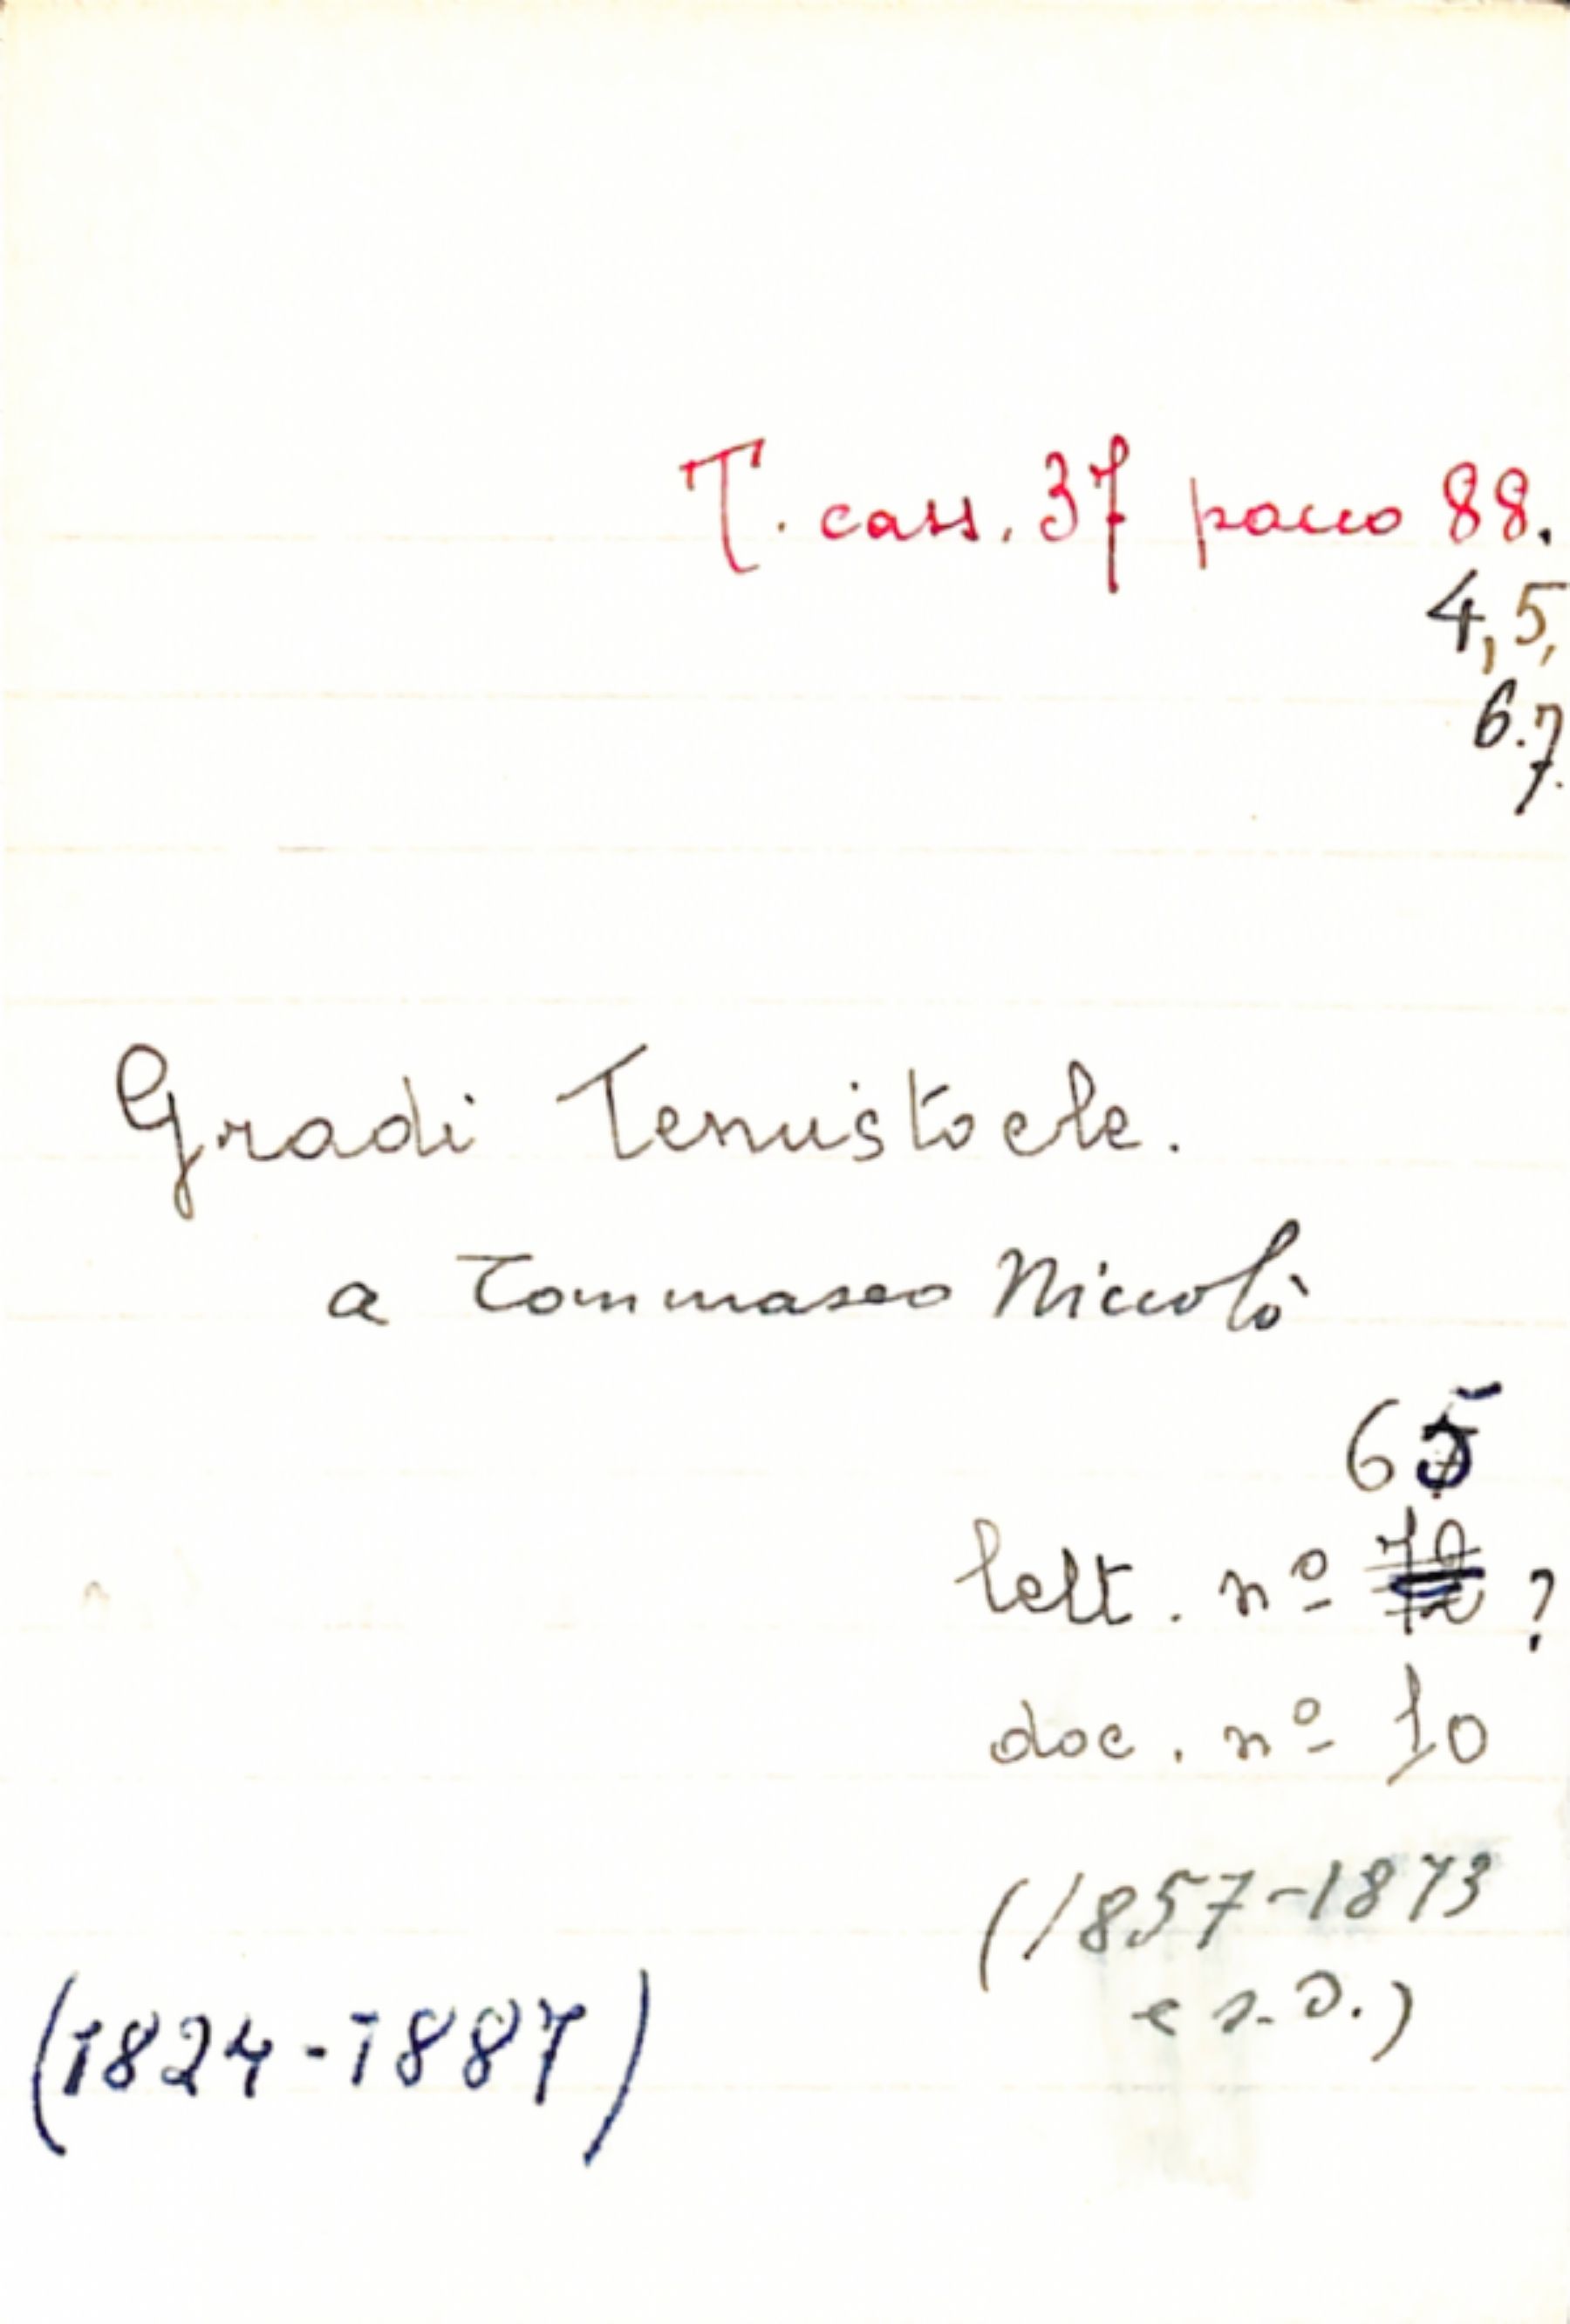 T. cass. 37 pacco 88.
4, 5,
6. 7.
Gradi Temistocle.
a Tommaseo Niccolò
65
lett. nº ?
doc. nº 10
(1857-1873
e s. d.)
(1824-1887)